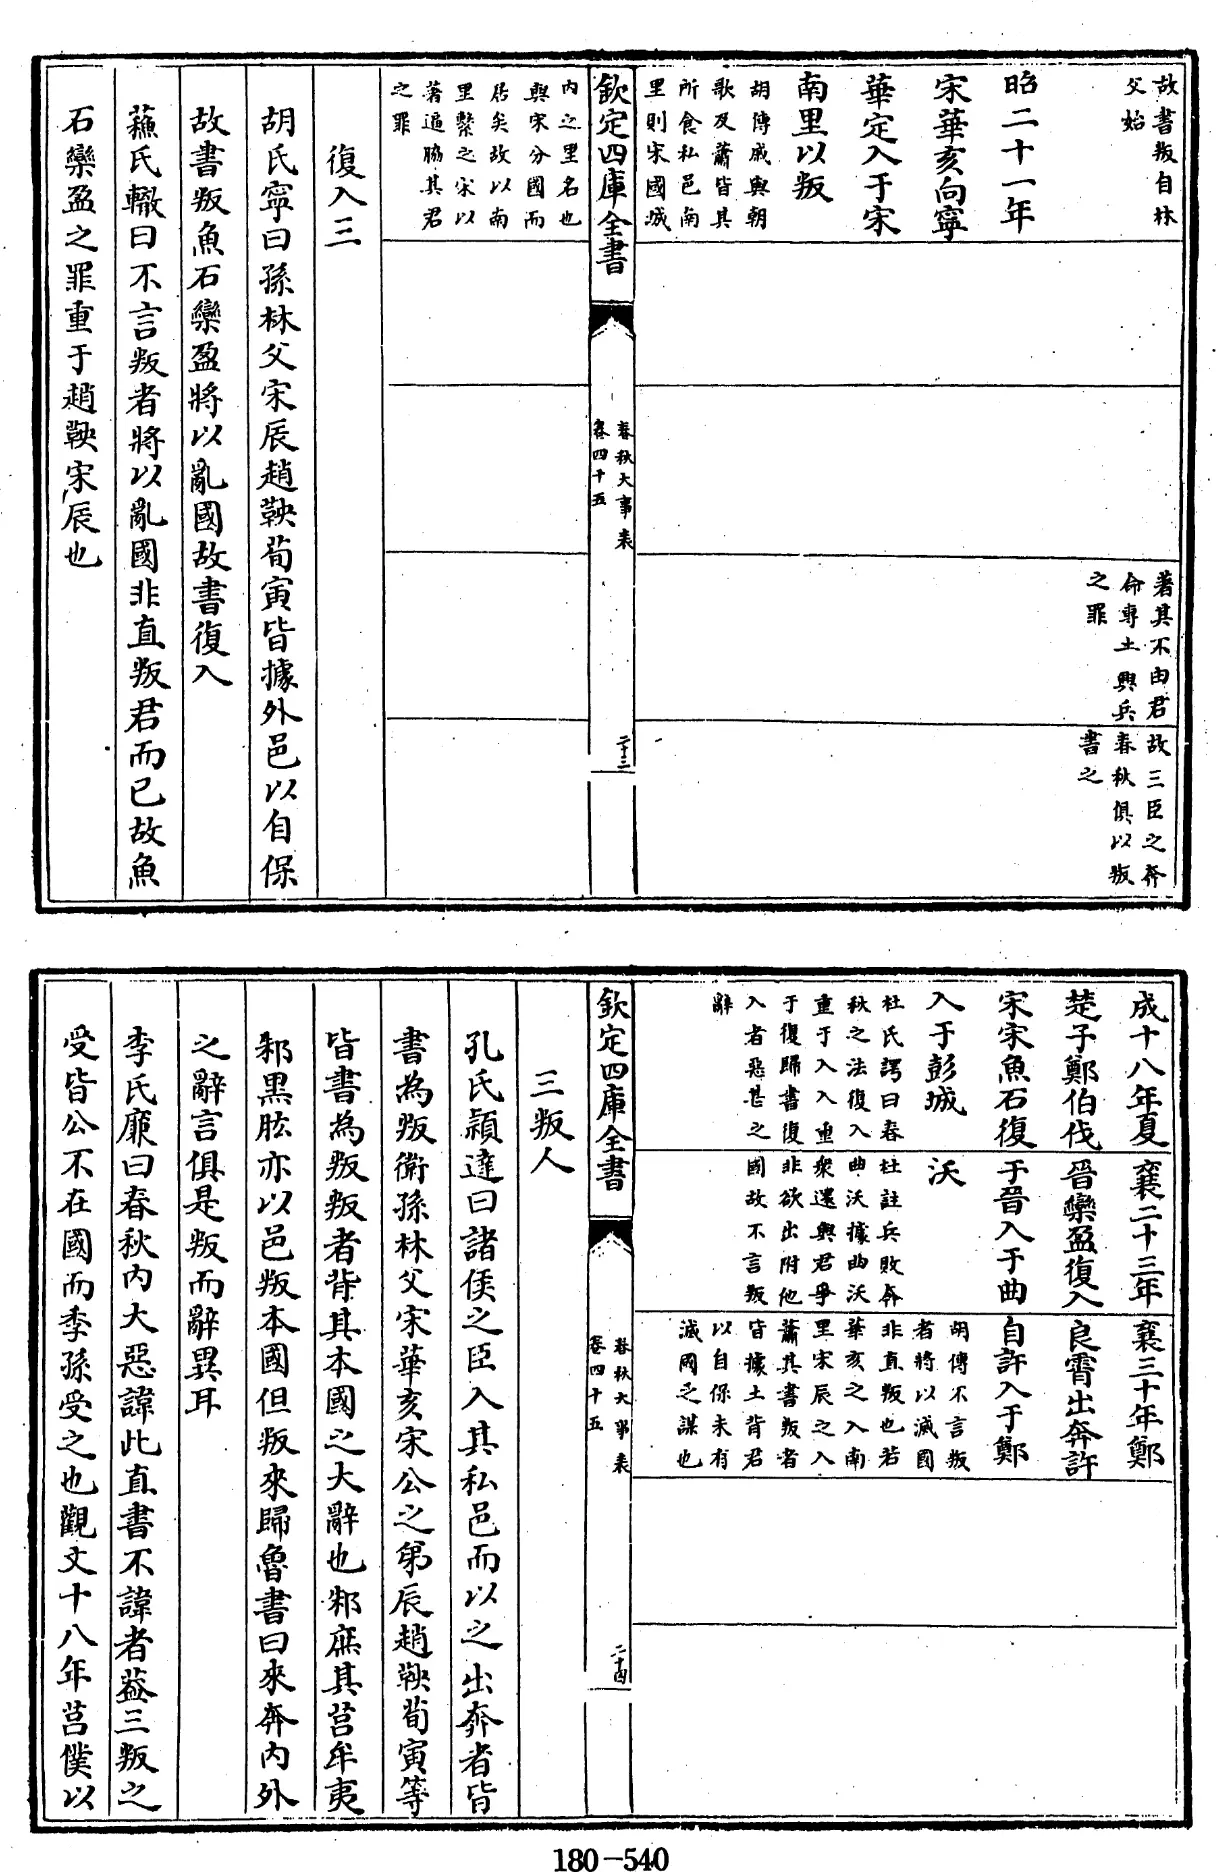 故書叛自林
父始
著其不由君
命專土興兵
之罪
故三臣之奔
春秋俱以叛
書之
昭二十一年
宋華亥向寧
華定入于宋
南里以叛
胡傳戚與朝
歌及蕭皆其
所食私邑南
里則宋國城
欽定四庫全書
春秋大事表
卷四十五
二十三
内之里名也
與宋分國而
居矣故以南
里繫之宋以
著逼脇其君
之罪
復入三
胡氏寧曰孫林父宋辰趙鞅荀寅皆據外邑以自保
故書叛魚石欒盈將以亂國故書復入
蘓氏轍曰不言叛者將以亂國非直叛君而已故魚
石欒盈之罪重于趙鞅宋辰也
成十八年夏
楚子鄭伯伐
宋宋魚石復
入于彭城
杜氏諤曰春
秋之法復入
重于入入重
于復歸書復
入者惡甚之
辭
襄二十三年
晉欒盈復入
于晉入于曲
沃
杜註兵敗奔
曲沃據曲沃
衆還與君爭
非欲出附他
國故不言叛
襄三十年鄭
良霄出奔許
自許入于鄭
胡傳不言叛
者將以滅國
非直叛也若
華亥之入南
里宋辰之入
蕭其書叛者
皆據土背君
以自保未有
滅國之謀也
欽定四庫全書
春秋大事表
卷四十五
二十四
三叛人
孔氏穎達曰諸侯之臣入其私邑而以之出奔者皆
書為叛衛孫林父宋華亥宋公之弟辰趙鞅荀寅等
皆書為叛叛者背其本國之大辭也邾庶其莒牟夷
邾黒肱亦以邑叛本國但叛來歸魯書曰來奔内外
之辭言俱是叛而辭異耳
李氏廉曰春秋内大惡諱此直書不諱者葢三叛之
受皆公不在國而季孫受之也觀文十八年莒僕以
180-540